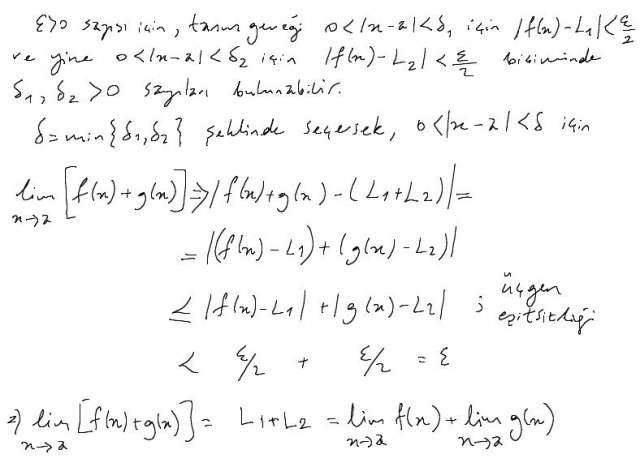 ε>0 sayısı için, tanım gereği 0<|x-a|<δ₁ için |f(x)-L₁|<ε/2
ve yine 0<|x-a|<δ₂ için |f(x)-L₂|<ε/2 biçiminde
δ₁, δ₂ >0 sayıları bulunabilir.
δ=min{δ₁,δ₂} şeklinde seçersek, 0<|x-a|<δ için
lim x→a [f(x)+g(x)] ⇒ |f(x)+g(x)-(L₁+L₂)|=
= |(f(x)-L₁)+(g(x)-L₂)|
≤ |f(x)-L₁|+|g(x)-L₂| ; üçgen eşitsizliği
< ε/2 + ε/2 = ε
⇒ lim x→a [f(x)+g(x)] = L₁+L₂ = lim x→a f(x) + lim x→a g(x)